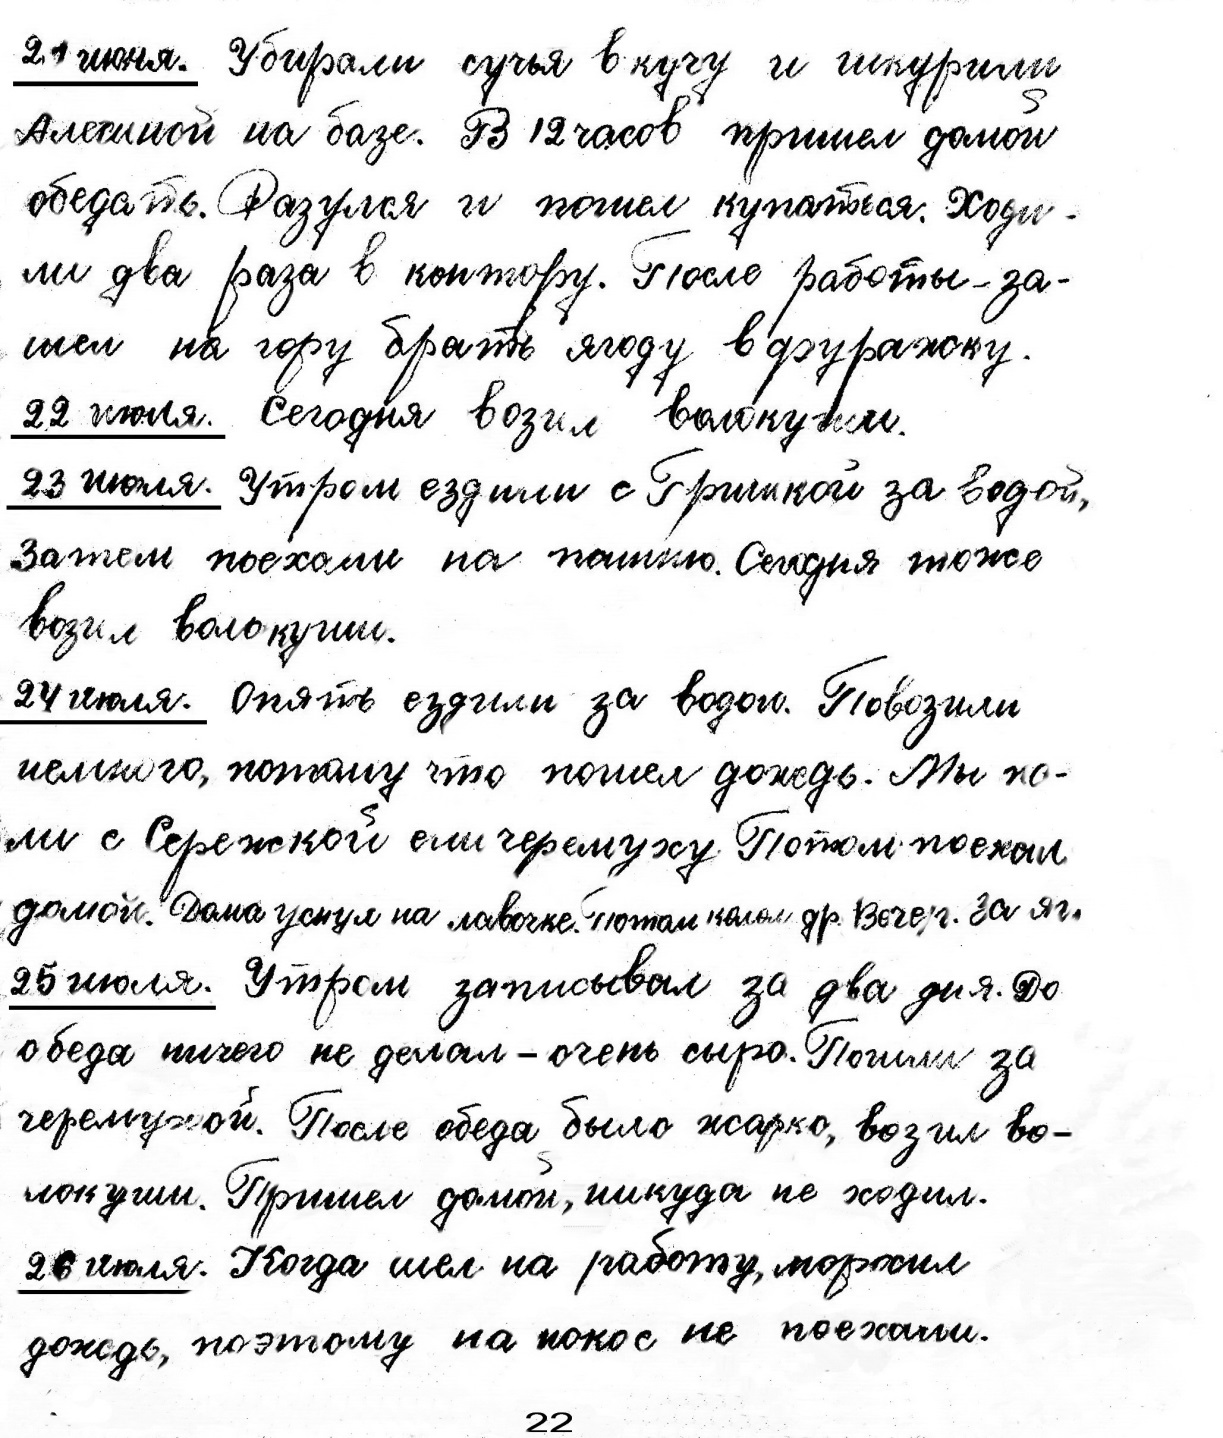 21 июня. Убирали сучья в кучу и шкурили
на базе. В 12 часов пришел домой
обедать. Разулся и пошел купаться. Ходи-
ли два раза в контору. После работы – за-
шел на гору брать ягоду в фуражку.
22 июля. Сегодня возил волокуши.
23 июля. Утром ездили с Гришкой за водой,
Затем поехали на пашню. Сегодня тоже
возил волокуши.
24 июля. Опять ездили за водой. Повозили
немного, потому что пошел дождь. Мы
ли с Сережкой ели черемуху Потом поехал
домой. Дома уснул на лавочке. Потом колол др. Вечер. За яг.
25 июля. Утром записывал за два дня. До
обеда ничего не делал – очень сыро. Пошли за
черемухой. После обеда было жарко, возил во-
локуши. Пришел домой, никуда не ходил.
26 июля. Когда шел на работу, морхил
дождь, поэтому на покос не поехали.
22